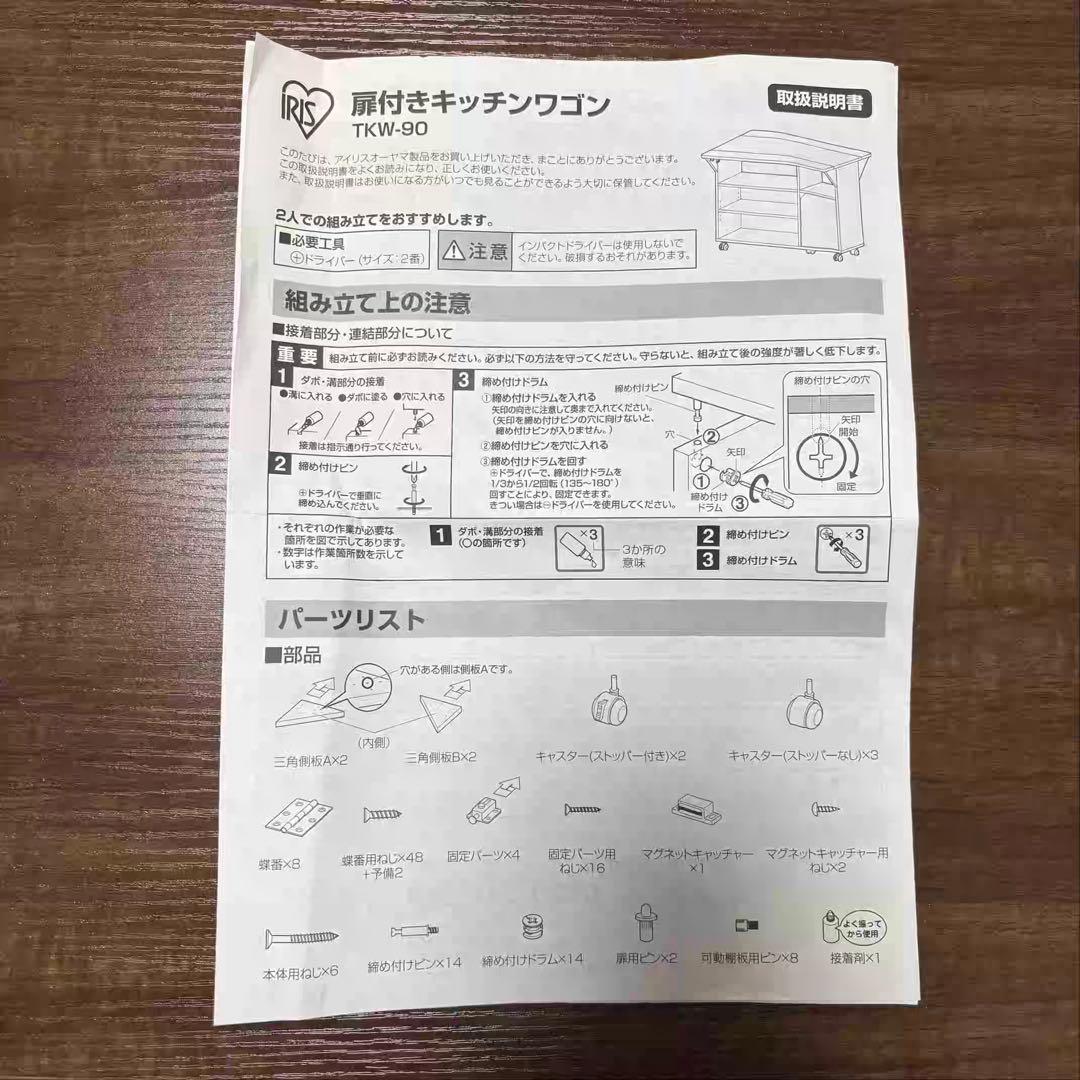 IRIS
扉付きキッチンワゴン
TKW-90
取扱説明書
このたびは、アイリスオーヤマ製品をお買い上げいただき、まことにありがとうございます。
この取扱説明書をよくお読みになり、正しくお使いください。
また、取扱説明書はお使いになる方がいつでも見ることができるよう大切に保管してください。
2人での組み立てをおすすめします。
■必要工具
⊕ドライバー(サイズ:2番)
注意
インパクトドライバーは使用しないで
ください。破損するおそれがあります。
組み立て上の注意
■接着部分・連結部分について
重要 組み立て前に必ずお読みください。必ず以下の方法を守ってください。守らないと、組み立て後の強度が著しく低下します。
1 ダボ・溝部分の接着
●溝に入れる ●ダボに塗る ●穴に入れる
接着は指示通り行ってください。
2 締め付けピン
⊕ドライバーで垂直に
締め込んでください。
3 締め付けドラム
①締め付けドラムを入れる
矢印の向きに注意して奥まで入れてください。
(矢印を締め付けピンの穴に向けないと、
締め付けピンが入りません。)
②締め付けピンを穴に入れる
③締め付けドラムを回す
⊕ドライバーで、締め付けドラムを
1/3から1/2回転(135~180°)
回すことにより、固定できます。
きつい場合は⊖ドライバーを使用してください。
締め付けピン
穴
②
矢印
①
締め付け
ドラム
③
締め付けピンの穴
矢印
開始
固定
・それぞれの作業が必要な
箇所を図で示してあります。
・数字は作業箇所数を示して
います。
1 ダボ・溝部分の接着
(○の箇所です)
×3
3か所の
意味
2 締め付けピン
3 締め付けドラム
×3
パーツリスト
■部品
穴がある側は側板Aです。
(内側)
三角側板A×2
三角側板B×2
キャスター(ストッパー付き)×2
キャスター(ストッパーなし)×3
蝶番×8
蝶番用ねじ×48
+予備2
固定パーツ×4
固定パーツ用
ねじ×16
マグネットキャッチャー
×1
マグネットキャッチャー用
ねじ×2
本体用ねじ×6
締め付けピン×14
締め付けドラム×14
扉用ピン×2
可動棚板用ピン×8
よく振って
から使用
接着剤×1